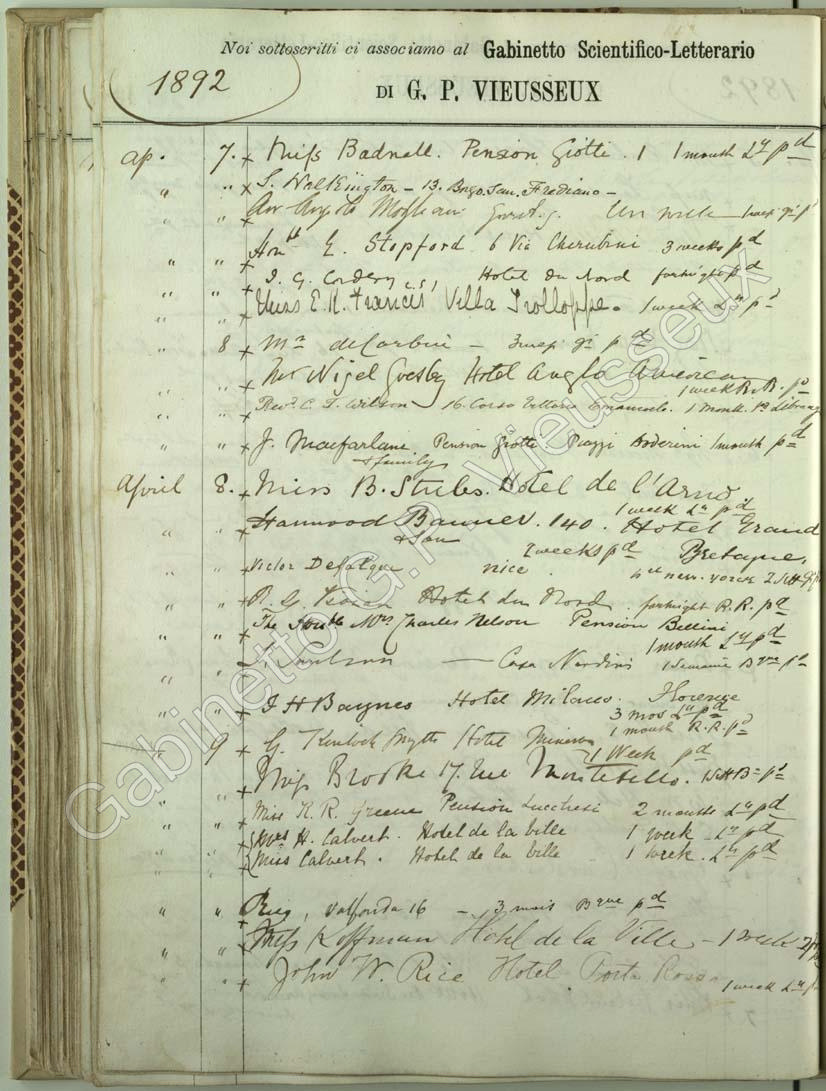 Noi sottoscritti ci associamo al Gabinetto Scientifico-Letterario
1892
DI G. P. VIEUSSEUX
Ap. 7. x Miss Badnall. Pension Giotti. 1 1 month Ly pd
" " x S. Walkington - 13. Borgo San Frediano -
" " x
" " x Honble E. Stopford 6 Via Cherubini 3 weeks pd
" " x J. G. Cordery, Hotel du Nord fortnight pd
" " x Miss E. R. Francis Villa Trolloppe. 1 week Ly pd
" 8 x Mr de Corbin - pd
" " x Mr Nigel Hotel Anglo American
1 week R.R. pd
" " Revd C. T. Wilson 16. Corso Vittorio Emanuele. 1 Month Library
" " x J. Macfarlane Pension Giotti Piazza 1 month pd
& family
April 8. x Miss B. Hotel de l'Arno
1 week Ly pd
" " x Harmood Banner. 140. Hotel Grand
& Son 2 weeks pd Bretagne.
" " x Victor nice
" " x R. G. Hotel du Nord. fortnight R.R. pd
" " x The Honble Mrs Charles Nelson Pension Bellini
1 month Ly pd
" " x - Casa Nardini 1 Semaine Bque pd
" " x J H Baynes Hotel Milano. Florence
3 mos Ly pd
1 month R.R. pd
" 9 x G. Kinloch Smyth Hotel Minerva
1 Week pd
" " x Miss Brooke 17. Rue Montebello. pd
" " x Miss R. R. Greene Pension Lucchesi 2 months Ly pd
" " x Mrs H. Calvert. Hotel de la ville 1 week. Ly pd
" " x Miss Calvert. Hotel de la ville 1 week. Ly pd
" " , Valfonda 16 - 3 mois Bque pd
" " x Miss Koffman Hotel de la Ville - 1 week
" " x John W. Rice Hotel Porta Rossa
1 week Ly
Gabinetto G.P. Vieusseux